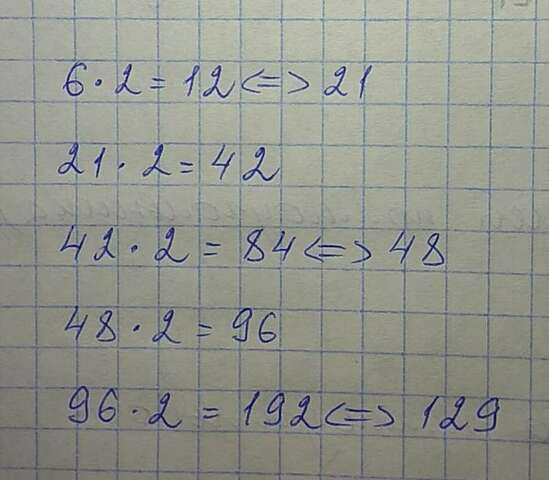 6·2=12<=>21
21·2=42
42·2=84<=>48
48·2=96
96·2=192<=>129